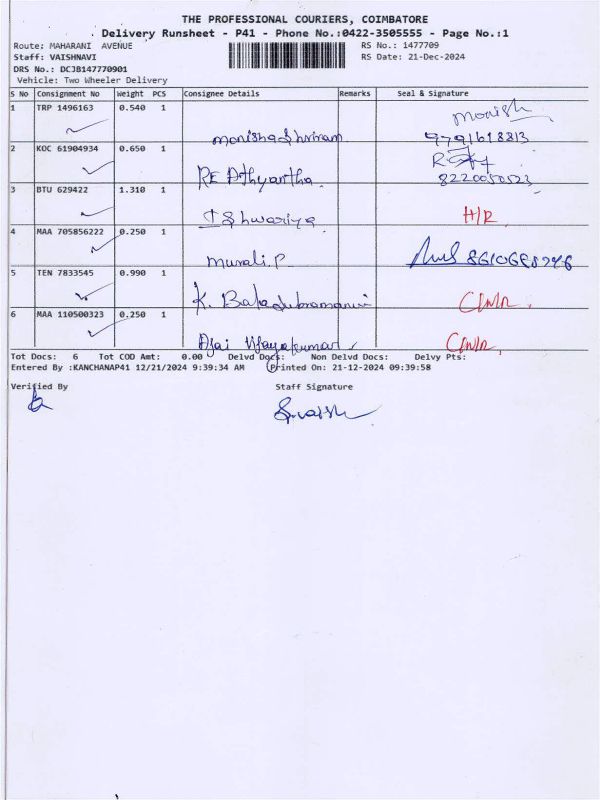 THE PROFESSIONAL COURIERS, COIMBATORE
Delivery Runsheet - P41 - Phone No.:0422-3505555 - Page No.:1
Route: MAHARANI AVENUE RS No.: 1477709
Staff: VAISHNAVI RS Date: 21-Dec-2024
DRS No.: DCJB147770901
Vehicle: Two Wheeler Delivery
S No Consignment No Weight PCS Consignee Details Remarks Seal & Signature
1 TRP 1496163 0.540 1 Monish
Monisha Shriram 9791618813
2 KOC 61904934 0.650 1
RE Athyartha 8220050523
3 BTU 629422 1.310 1
Ishwariya H/R
4 MAA 705856222 0.250 1
Murali.P
5 TEN 7833545 0.990 1
K. Balasubramani
6 MAA 110500323 0.250 1
Ajai Vijayakumar
Tot Docs: 6 Tot COD Amt: 0.00 Delvd Docs: Non Delvd Docs: Delvy Pts:
Entered By :KANCHANAP41 12/21/2024 9:39:34 AM Printed On: 21-12-2024 09:39:58
Verified By Staff Signature